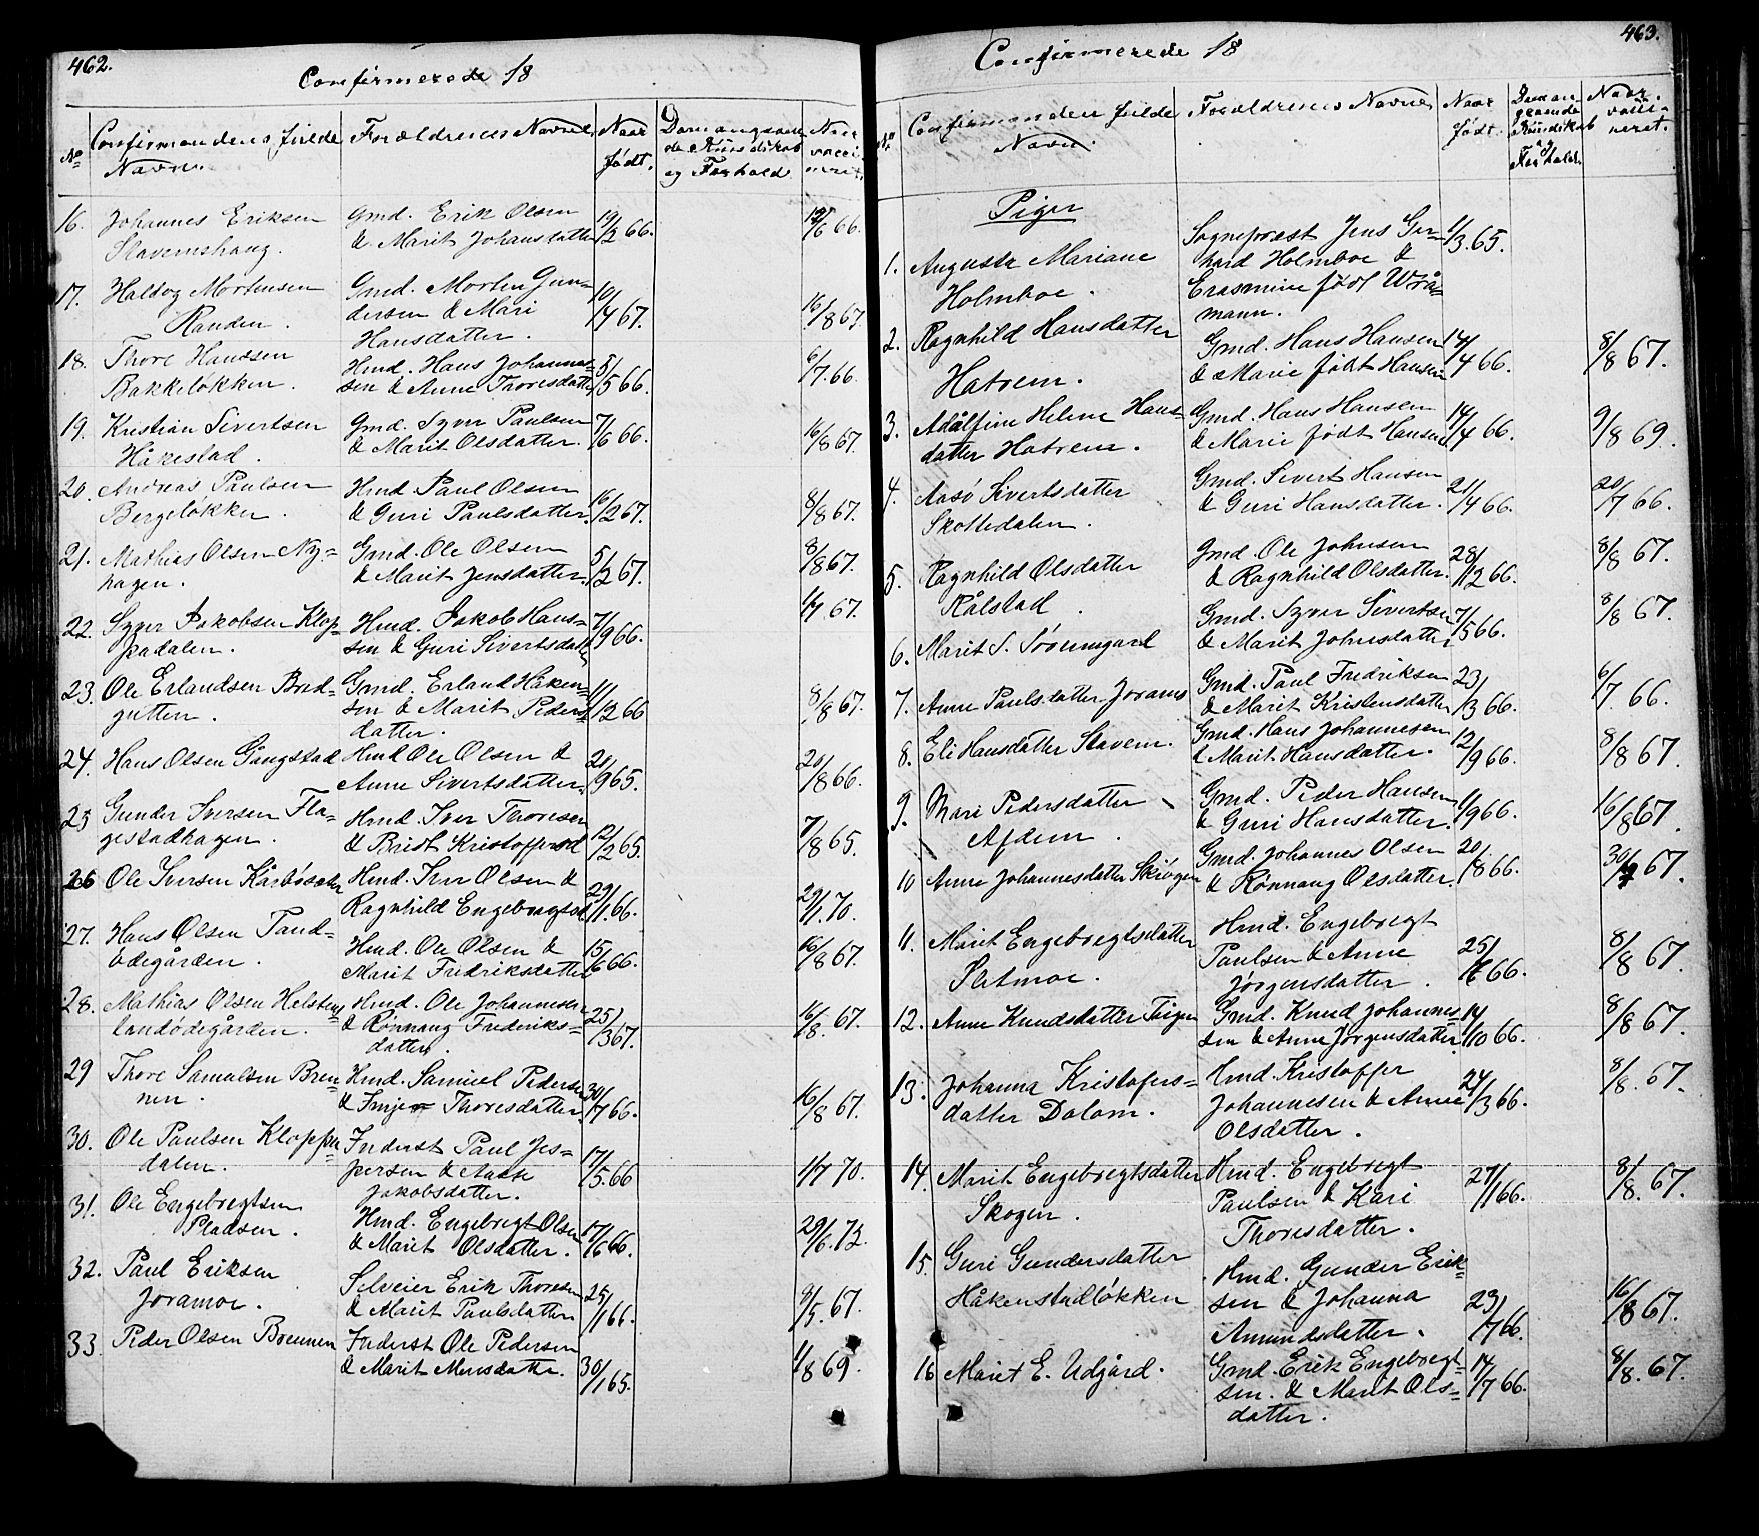 462.
Confirmerede 18
No
Confirmandens fulde
Navn.
Forældrenes Navne
Naar
født.
Dom angaaen
de Kundskab
og Forhold
Naar
vacci
neret.
16. Johannes Eriksen Gmd. Erik Olsen 19/2 66. 12/6 66.
Stavemshaug. & Marit Johansdatter
17. Haldog Mortensen Gmd. Morten Gun- 10/1 67. 16/8 67.
Randen. dersen & Mari
Hansdatter.
18. Thore Hansen Hmd. Hans Johannes- 5/5 66. 6/7. 66.
Bakkeløkken. sen & Anne Thoresdatter
19. Kristian Sivertsen Gmd. Syver Paulsen 7/6 66. 16/8 67.
Håkestad. & Marit Olsdatter.
20. Andreas Paulsen Hmd. Paul Olsen 16/2 67. 8/8 67.
Bergeløkken. & Guri Paulsdatter.
21. Mathias Olsen Ny= Gmd. Ole Olsen 5/2 67. 8/8 67.
hagen. & Marit Jensdatter.
22. Syver Jakobsen Klop= Hmd. Jakob Hans= 7/9 66. 1/7 67.
padalen. sen & Guri Sivertsdatter
23. Ole Erlandsen Bred= Gmd. Erland Håken= 11/12 66 8/8 67.
gutten. sen & Marit Peders=
datter.
24. Hans Olsen Gångstad Hmd Ole Olsen & 20/9 65. 20/8 66.
Anne Sivertsdatter.
25 Gunder Iversen Fla= Hmd. Iver Thoresen 12/2 65. 7/8 65.
gestadhagen. & Brist Kristoffersd
26 Ole Iversen Kårbøsæter Hmd. Iver Olsen & 29/1. 66. 29/1. 70.
Ragnhild Engebregtsd.
27. Hans Olsen Tand= Hmd. Ole Olsen & 15/6 66. 16/8 67.
ødegården. Marit Fredriksdatter
28. Mathias Olsen Helsten= Hmd. Ole Johannesen 25/3 67. 16/8. 67.
landødegården. & Rønnaug Frederiks=
datter.
29 Thore Samulsen Bren= Hmd. Samuel Pedersen 30/7 66. 16/8 67.
nen. & Imjer Thoresdatter
30. Ole Paulsen Kloppen= Inderst Paul Jes= 17/5. 66 1/7 70.
dalen. persen & Aaste
Jakobsdatter.
31. Ole Engebregtsen Hmd. Engebregt Olsen 17/6 66. 29/6. 72.
Pladsen. & Marit Olsdatter.
32. Paul Eriksen Selveier Erik Thoresen 25/1 66. 8/5. 67.
Joramoe. & Marit Paulsdatter
33. Peder Olsen Brennen Inderst Ole Pedersen 30/1 65. 11/8 69.
& Marit Monsdatter.
463.
Confirmerede 18
No
Confirmanden fulde
Navn.
Forældrenes Navne
Naar
født.
Dom an-
gaaende
Kundskab
og
Forhold.
Naar
vacci-
neret.
Piger
1. Augusta Mariane Sogneprest Jens Ger= 1/3. 65.
Holmboe. hard Holmboe &
Erasmine født Wrå=
mann.
2. Ragnhild Hansdatter Gmd. Hans Hansen 14/4 66. 8/8 67.
Hatrem. & Marie født Hansen
3. Adålfine Helene Hans= Gmd. Hans Hansen 14/4 66. 9/8 69.
datter Hatrem. & Marie født Hansen
4. Aasø Sivertsdatter Gmd. Sivert Hansen 21/4 66. 20/7 66.
Skottedalen. & Guri Hansdatter.
5. Ragnhild Olsdatter Gmd. Ole Johnsen 28/12 66. 8/8 67.
Rålstad. & Ragnhild Olsdatter.
6. Marit S. Sørumgard Gmd. Syver Sivertsen 7/5 66. 8/8 67.
& Marit Johnsdatter
7. Anne Paulsdatter Joramo Gmd. Paul Fredriksen 23/3 66. 6/7. 66.
& Marit Kristensdatter
8. Eli Hansdatter Stavem. Gmd. Hans Johannesen 12/9 66. 8/8 67.
& Marit Hansdatter.
9. Mari Pedersdatter Gmd. Peder Hansen 11/9 66. 16/8 67.
Afdem. & Guri Hansdatter.
10 Anne Johannesdatter Skogen Gmd. Johannes Olsen 20/8 66. 30/7 67.
& Rønnaug Olsdatter.
11. Marit Engebregtsdatter Hmd. Engebregt 25/6 66. 8/8 67.
Sletmoe. Paulsen & Anne
Jørgensdatter.
12. Anne Knudsdatter Tigen Gmd. Knud Johannes= 14/10 66. 8/8 67.
sen & Anne Jørgensdatter.
13. Johanna Kristofers= Hmd. Kristoffer 24/3 66. 8/8. 67.
datter Dalom. Johannesen & Anne
Olsdatter.
14. Marit Engebregtsdatter Hmd. Engebregt 27/1 66. 8/8. 67.
Skogen. Paulsen & Kari
Thoresdatter.
15. Guri Gundersdatter Hmd. Gunder Erik= 23/7 66. 16/8 67.
Håkenstadløkken sen & Johanna
Amundsdatter.
16 Marit E. Udgård. Gmd. Erik Engebregt= 14/7 66. 8/8. 67.
sen. & Marit Ols=
datter.